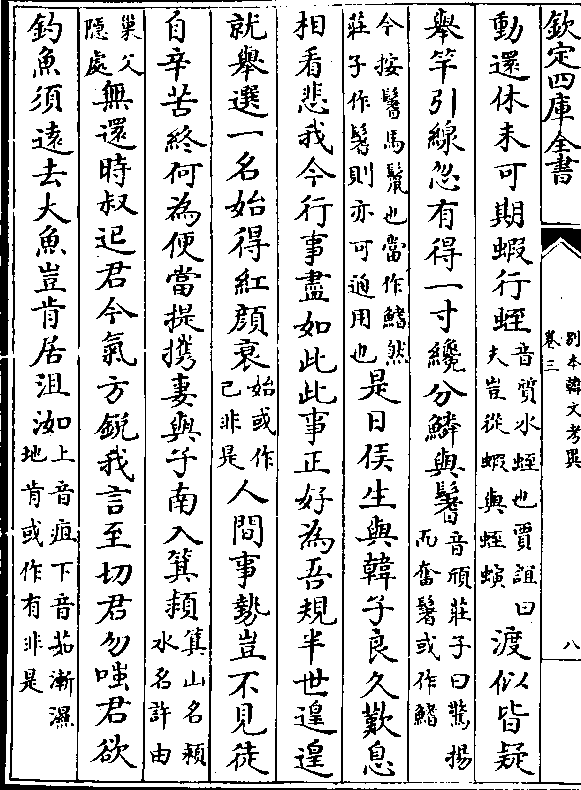 欽定四庫全書
別本韓文考異
卷三
八
動還休未可期蝦行蛭音質水蛭也賈誼曰夫豈從蝦與蛭螾渡似皆疑
舉竿引線忽有得一寸纔分鱗與鬐音頎莊子曰驚揚而奮鬐或作鰭
今按鬐馬鬛也當作鰭然莊子作鬐則亦可通用也是日侯生與韓子良久歎息
相看悲我今行事盡如此此事正好為吾規半世遑遑
就舉選一名始得紅顔衰始或作已非是人間事勢豈不見徒
自辛苦終何為便當提携妻與子南入箕潁箕山名潁水名許由
巢父隱處無還時叔迟君今氣方銳我言至切君勿嗤君欲
釣魚須遠去大魚豈肯居沮洳上音疽下音茹漸濕地肯或作有非是